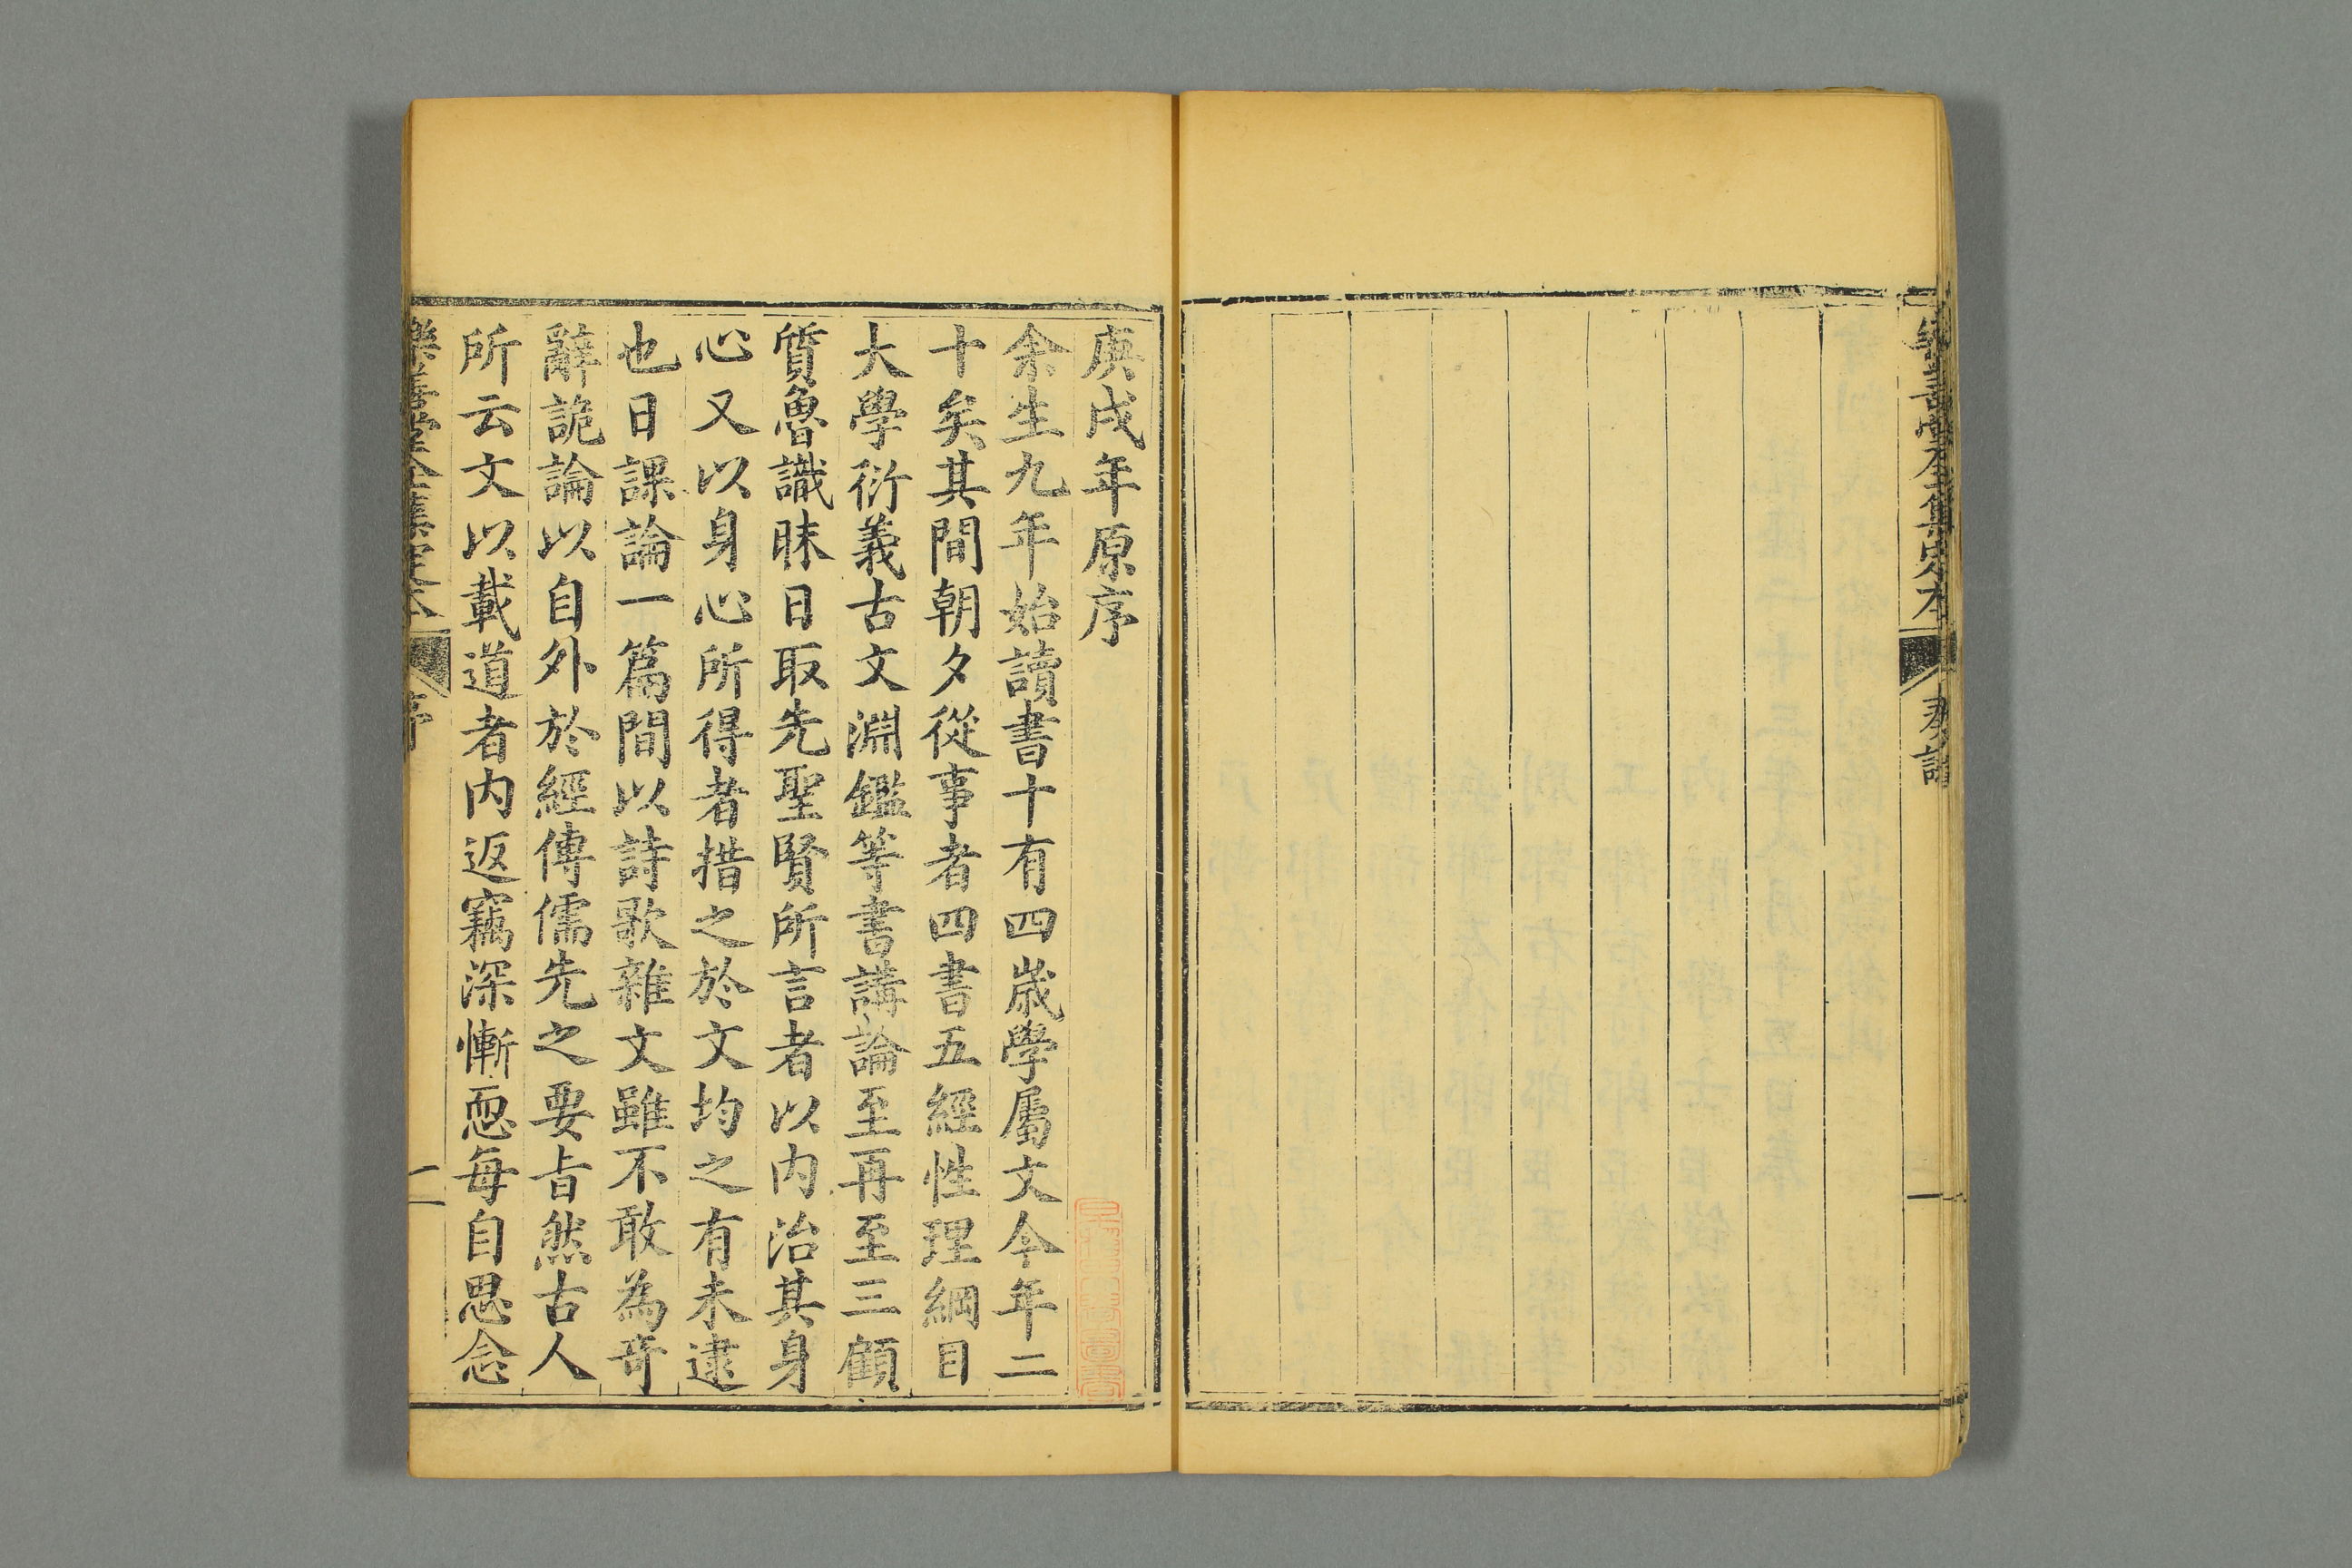 樂善堂全集定本
奏議
一
庚戌年原序
余生九年始讀書十有四歲學屬文今年二
十矣其間朝夕從事者四書五經性理綱目
大學衍義古文淵鑑等書講論至再至三顧
質魯識昧日取先聖賢所言者以内治其身
心又以身心所得者措之於文均之有未逮
也日課論一篇間以詩歌雜文雖不敢為奇
辭詭論以自外於經傳儒先之要旨然古人
所云文以載道者内返竊深慚恧每自思念
樂善堂全集定本
序
二